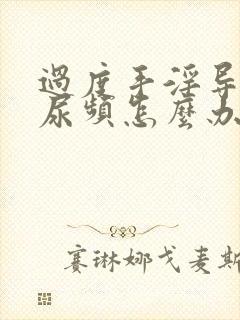 過度手淫导
尿頻怎麼办
赛琳娜戈麦斯